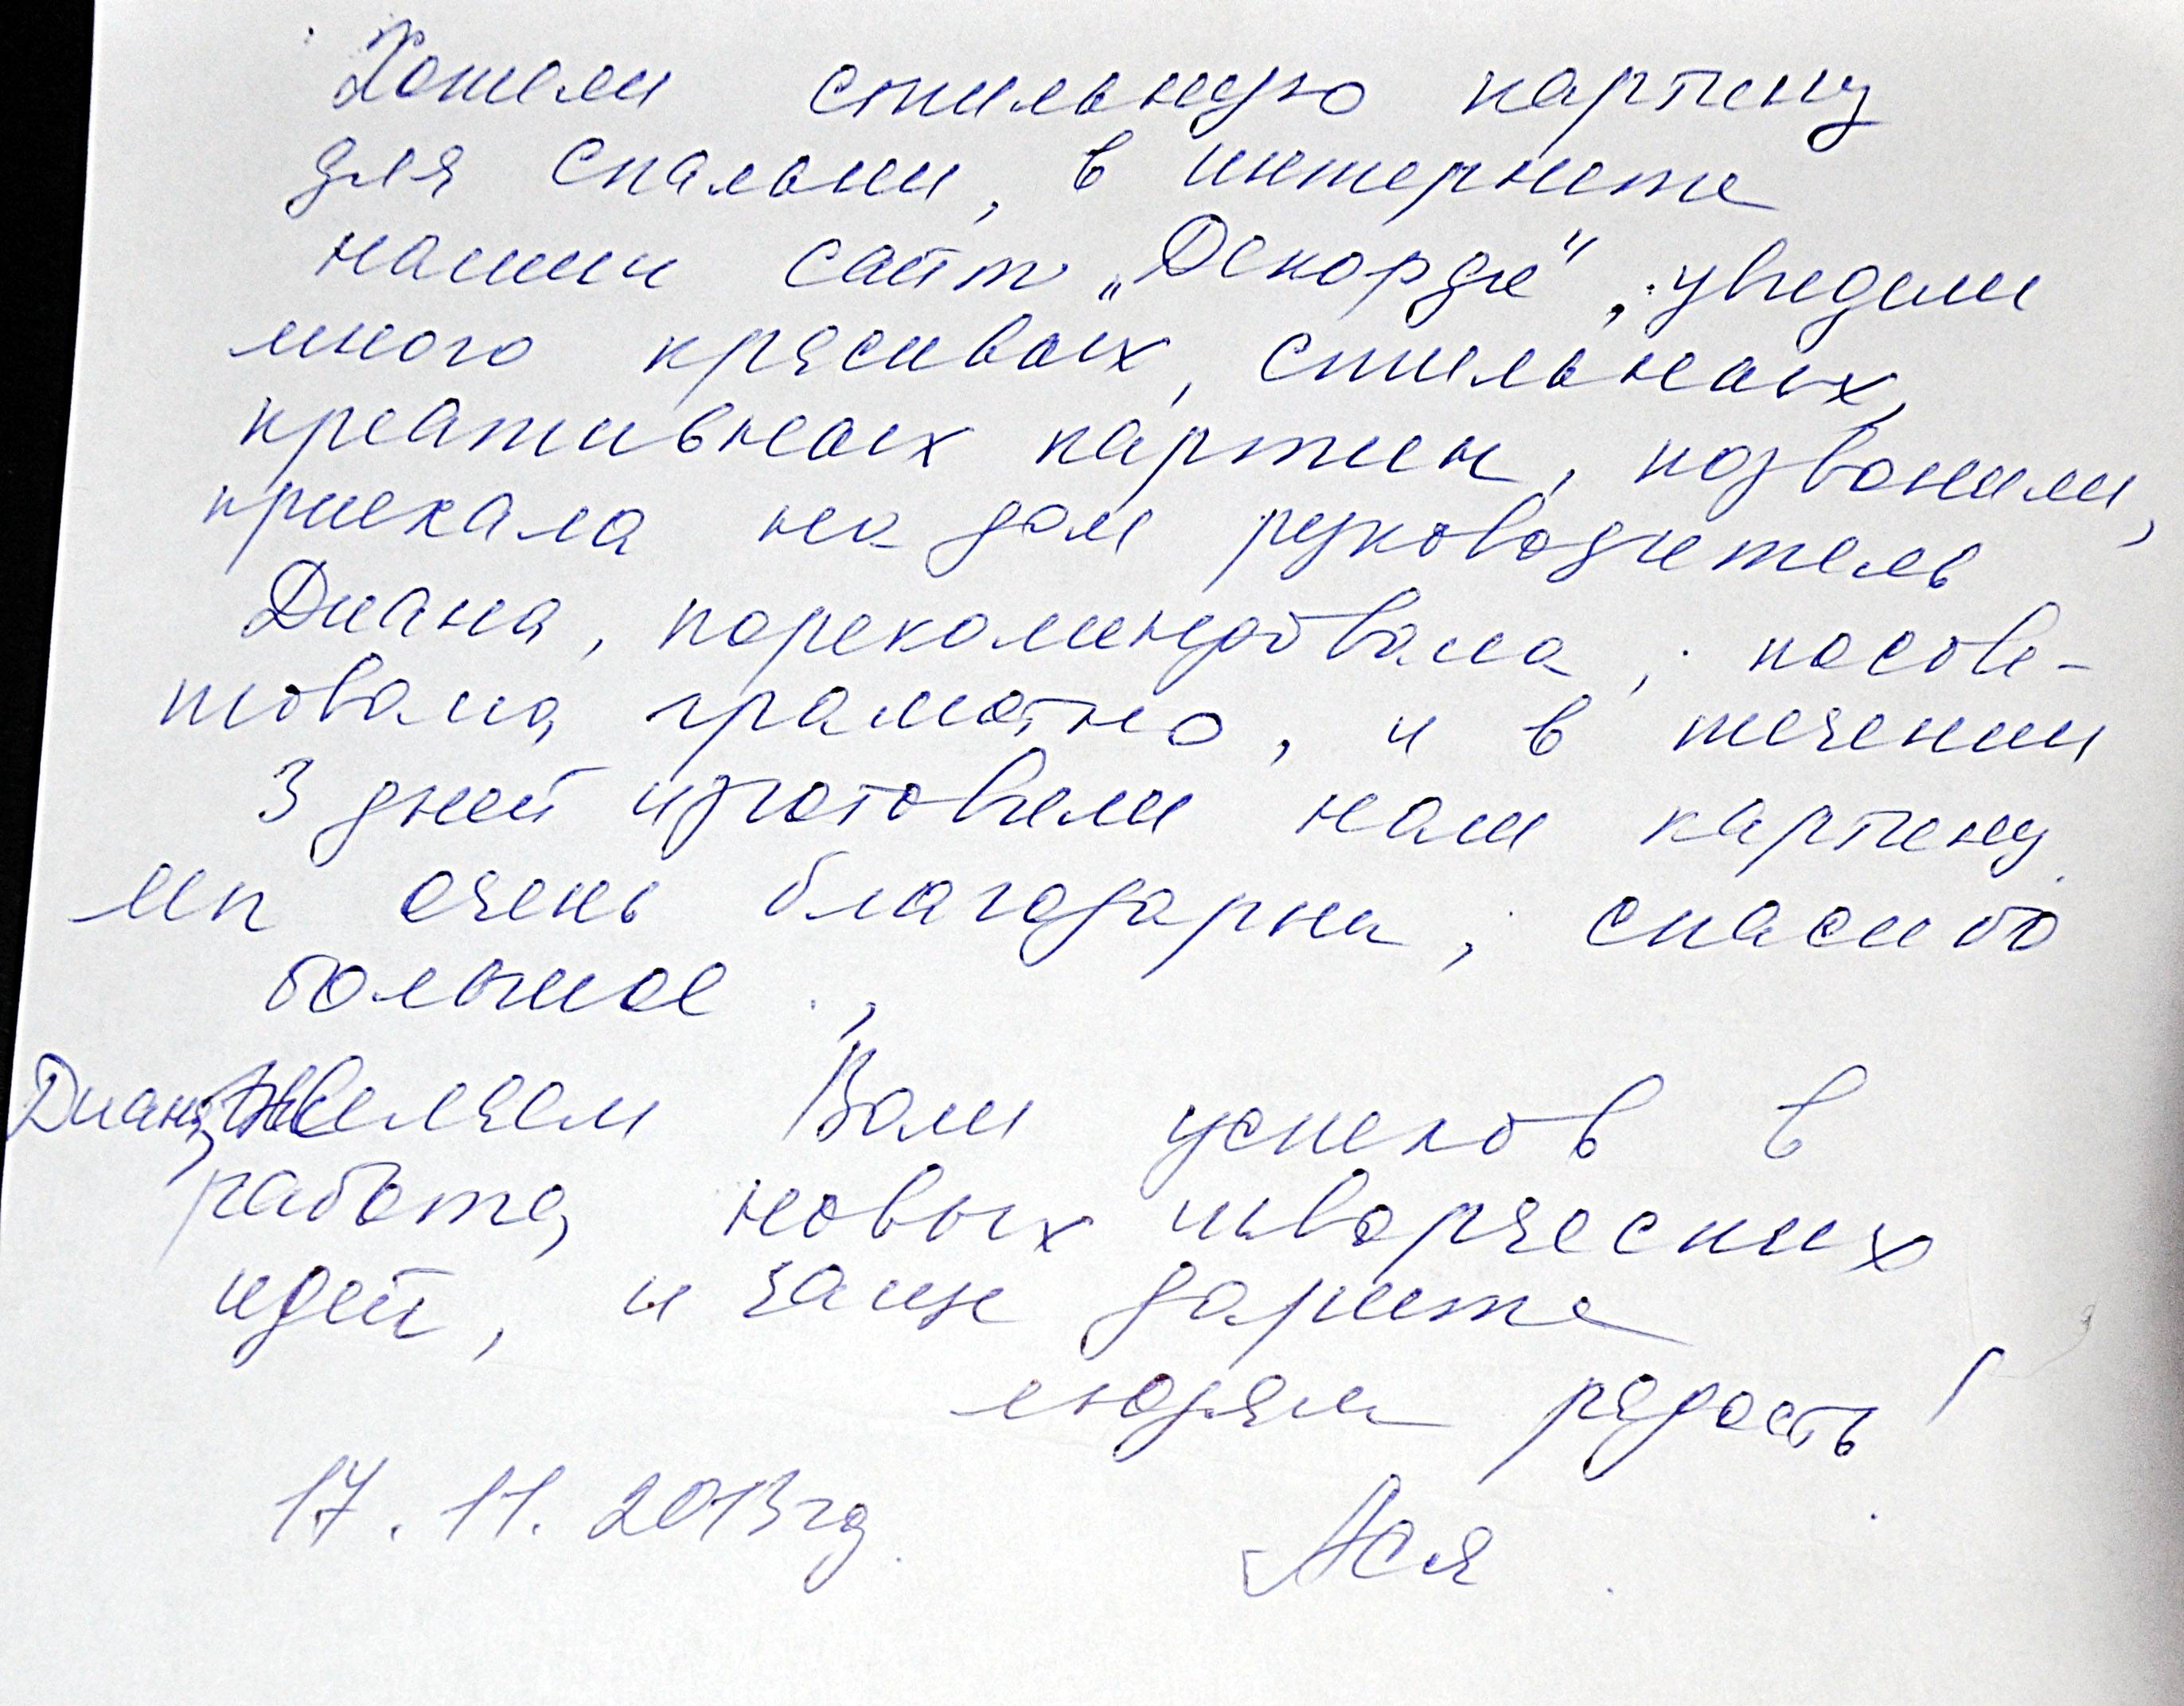 Хотели стильную картину
для спальни, в интернете
нашли сайт „Декордие“, увидели
много красивых, стильных,
креативных картин, позвонили,
приехала на дом руководитель
Диана, порекомендовала, посове-
товала, грамотно, и в течении
3 дней изготовили нам картину.
Мы очень благодарны, спасибо
большое.,
Диана, Желаем Вам успехов в
работе, новых творческих
идей, и чаще дарите
людям радость!
17.11.2013 гд. Ася